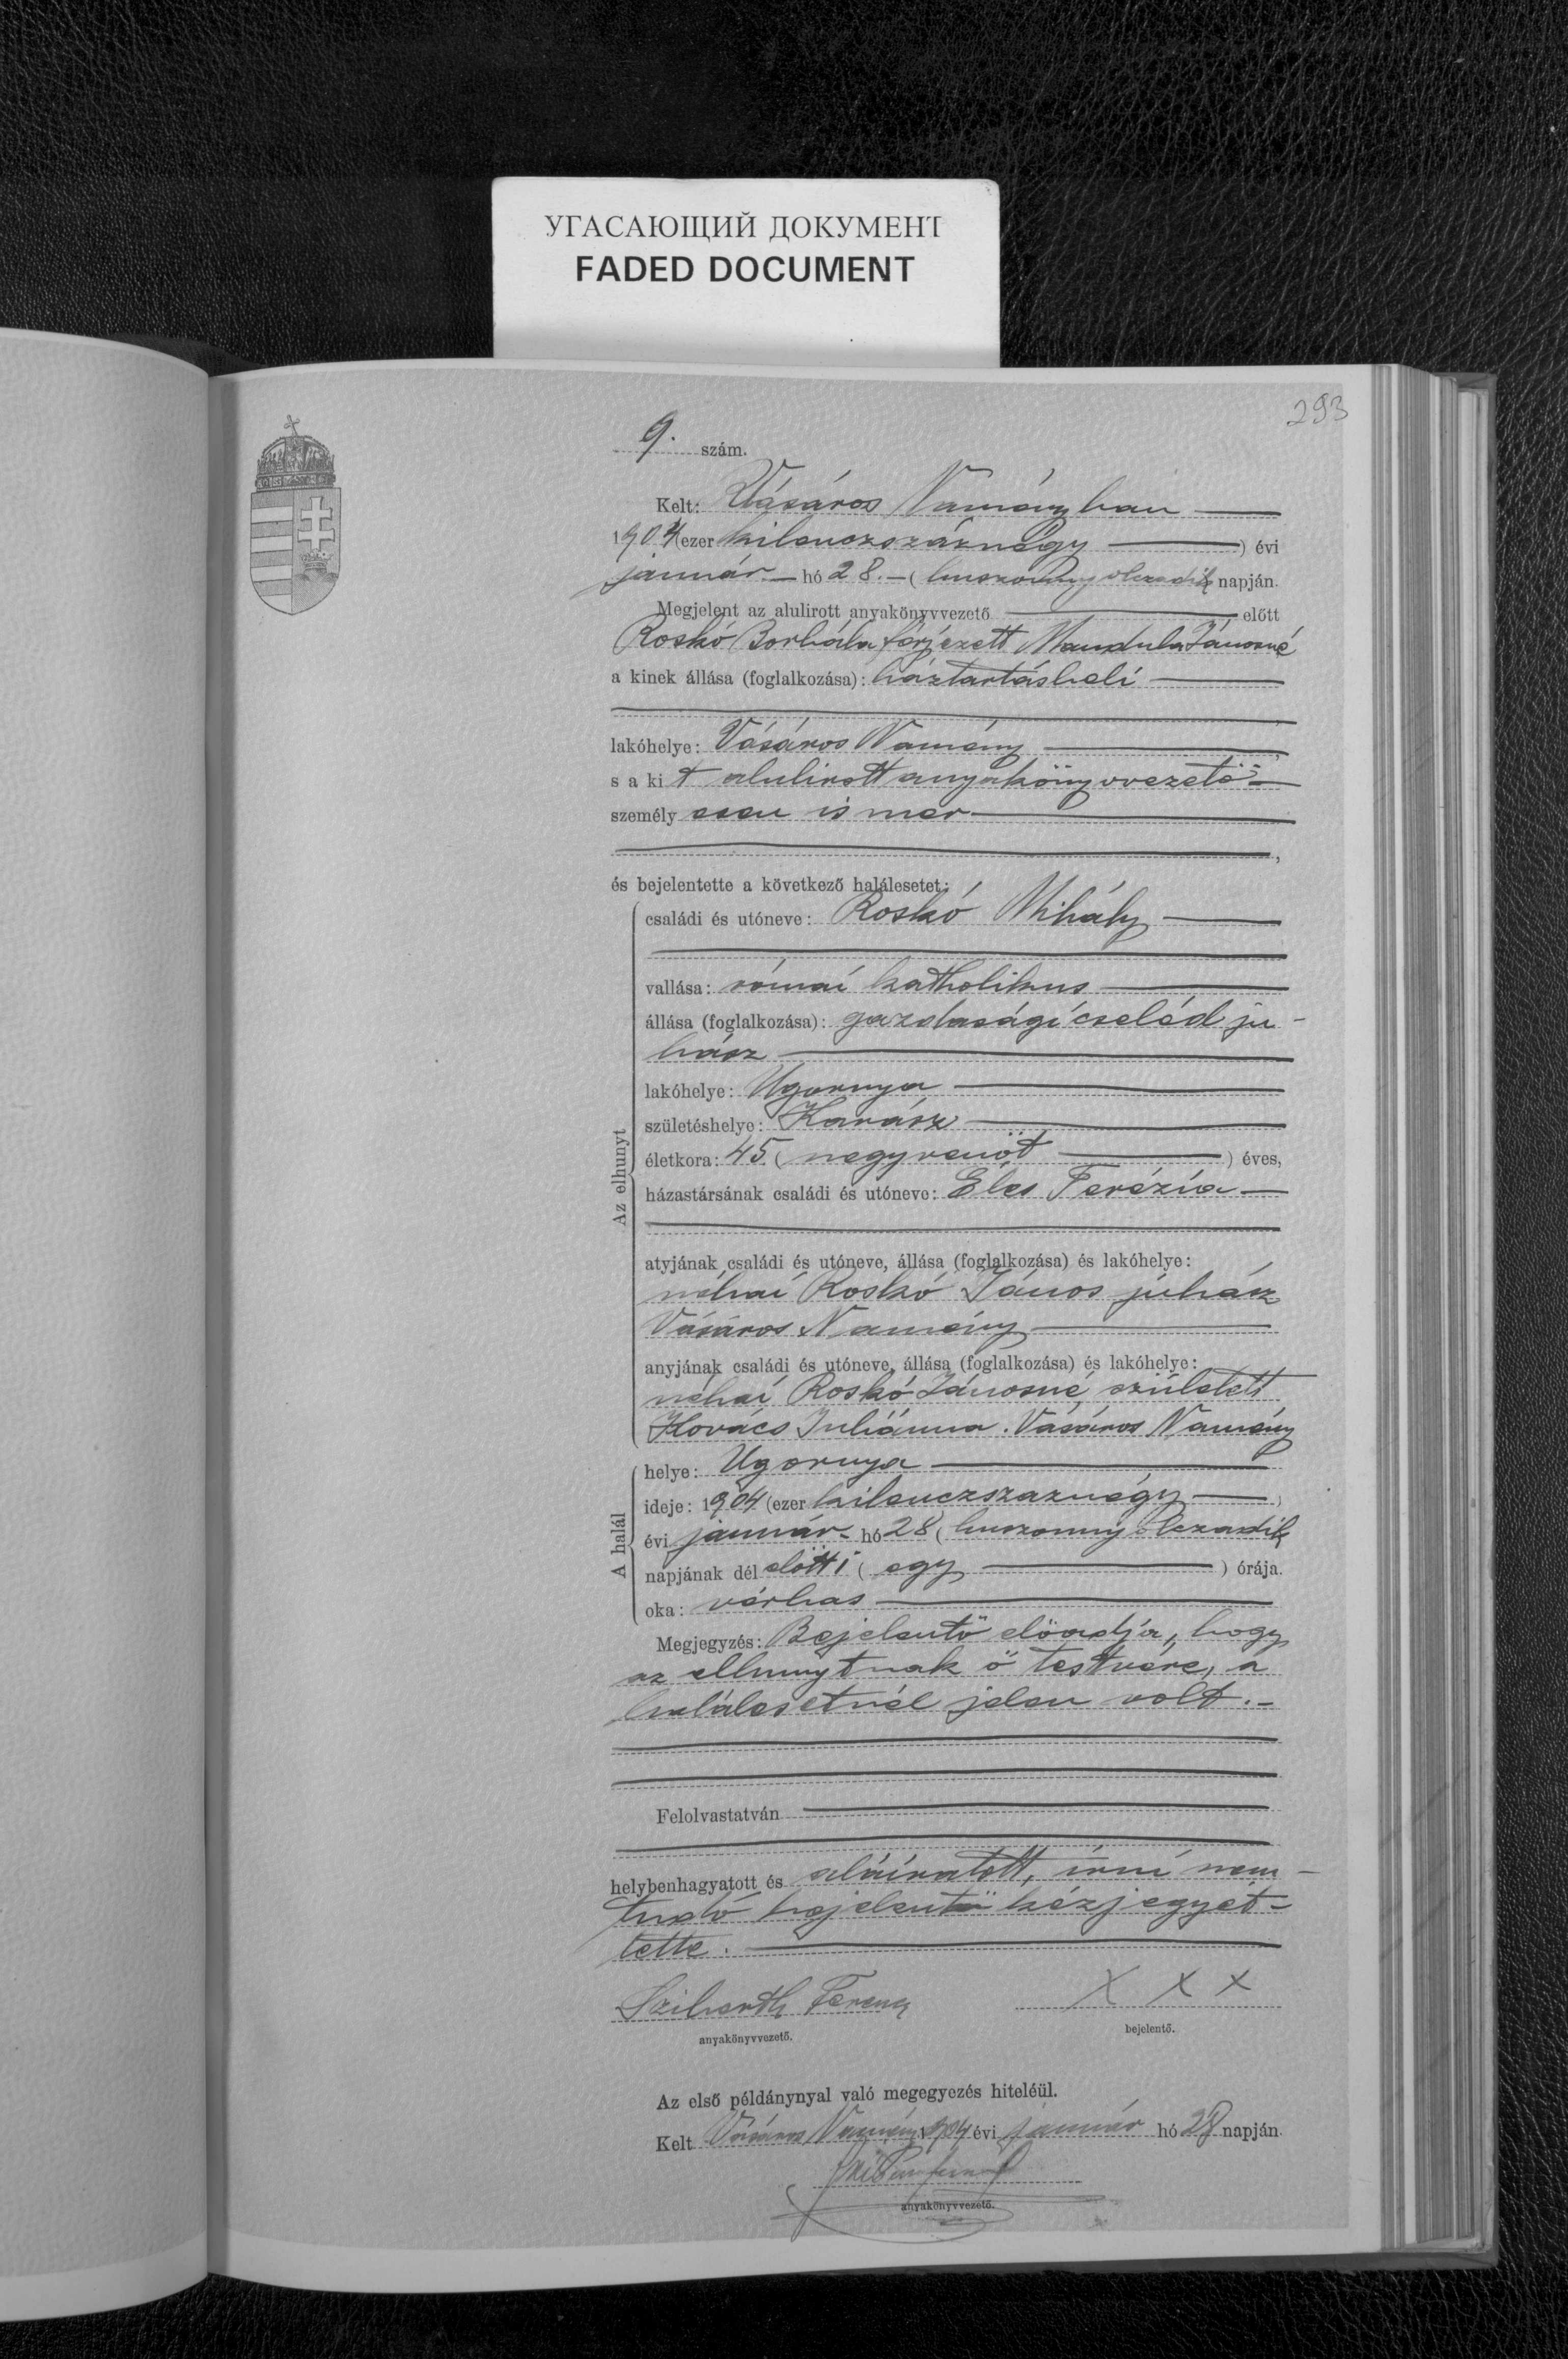 УГАСАЮЩИЙ ДОКУМЕНТ
FADED DOCUMENT
293
9. szám.
Kelt: Vásáros Naményban
1904 (ezer kilenczszáznégy ) évi
január hó 28. ( huszonnyolczadik napján.
Megjelent az alulirott anyakönyvvezető előtt
Roskó Borbála férjezett Mandula Jánosné
a kinek állása (foglalkozása): háztartásbeli
lakóhelye: Vásáros Namény
s a ki t alulirott anyakönyvvezető
személy esen ismer
,
és bejelentette a következő halálesetet:
Az elhunyt
családi és utóneve: Roskó Mihály
vallása: római katholikus
állása (foglalkozása): gazdasági cseléd ju-
hász
lakóhelye: Ugornya
születéshelye: Karász
életkora: 45 ( negyvenöt ) éves,
házastársának családi és utóneve: Éles Terézia
atyjának családi és utóneve, állása (foglalkozása) és lakóhelye:
néhai Roskó János juhász
Vásáros Namény
anyjának családi és utóneve, állása (foglalkozása) és lakóhelye:
néhai Roskó Jánosné született
Kovács Juliánna. Vásáros Namény
A halál
helye: Ugornya
ideje: 1904 (ezer kilenczszáznégy )
évi január hó 28 ( huszonnyolczadik
napjának dél előtti ( egy ) órája.
oka: vérhas
Megjegyzés: Bejelentő előadja, hogy
az elhunytnak ő testvére, a
halálesetnél jelen volt.
Felolvastatván
helybenhagyatott és aláíratott, írni nem
tudó bejelentő kézjegyét
tette.
Ferencz
X X X
anyakönyvvezető.
bejelentő.
Az első példánynyal való megegyezés hiteléül.
Kelt Vásáros Namény 1904 évi január hó 28 napján.
anyakönyvvezető.